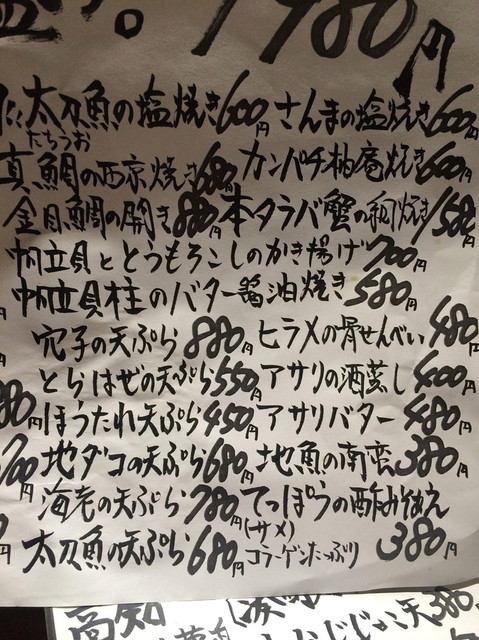 1980円
太刀魚の塩焼き600円 さんまの塩焼き600円
たちうお
真鯛の西京焼き680円 カンパチ柚庵焼き600円
金目鯛の開き880円 本タラバ蟹の網焼き1580円
帆立貝ととうもろこしのかき揚げ700円
帆立貝柱のバター醤油焼き580円
穴子の天ぷら880円 ヒラメの骨せんべい480円
とらはぜの天ぷら550円 アサリの酒蒸し400円
ほうたれ天ぷら450円 アサリバター480円
地ダコの天ぷら680円 地魚の南蛮380円
海老の天ぷら780円 てっぽうの酢みそあえ
太刀魚の天ぷら680円 (サメ)コラーゲンたっぷり 380円
高知